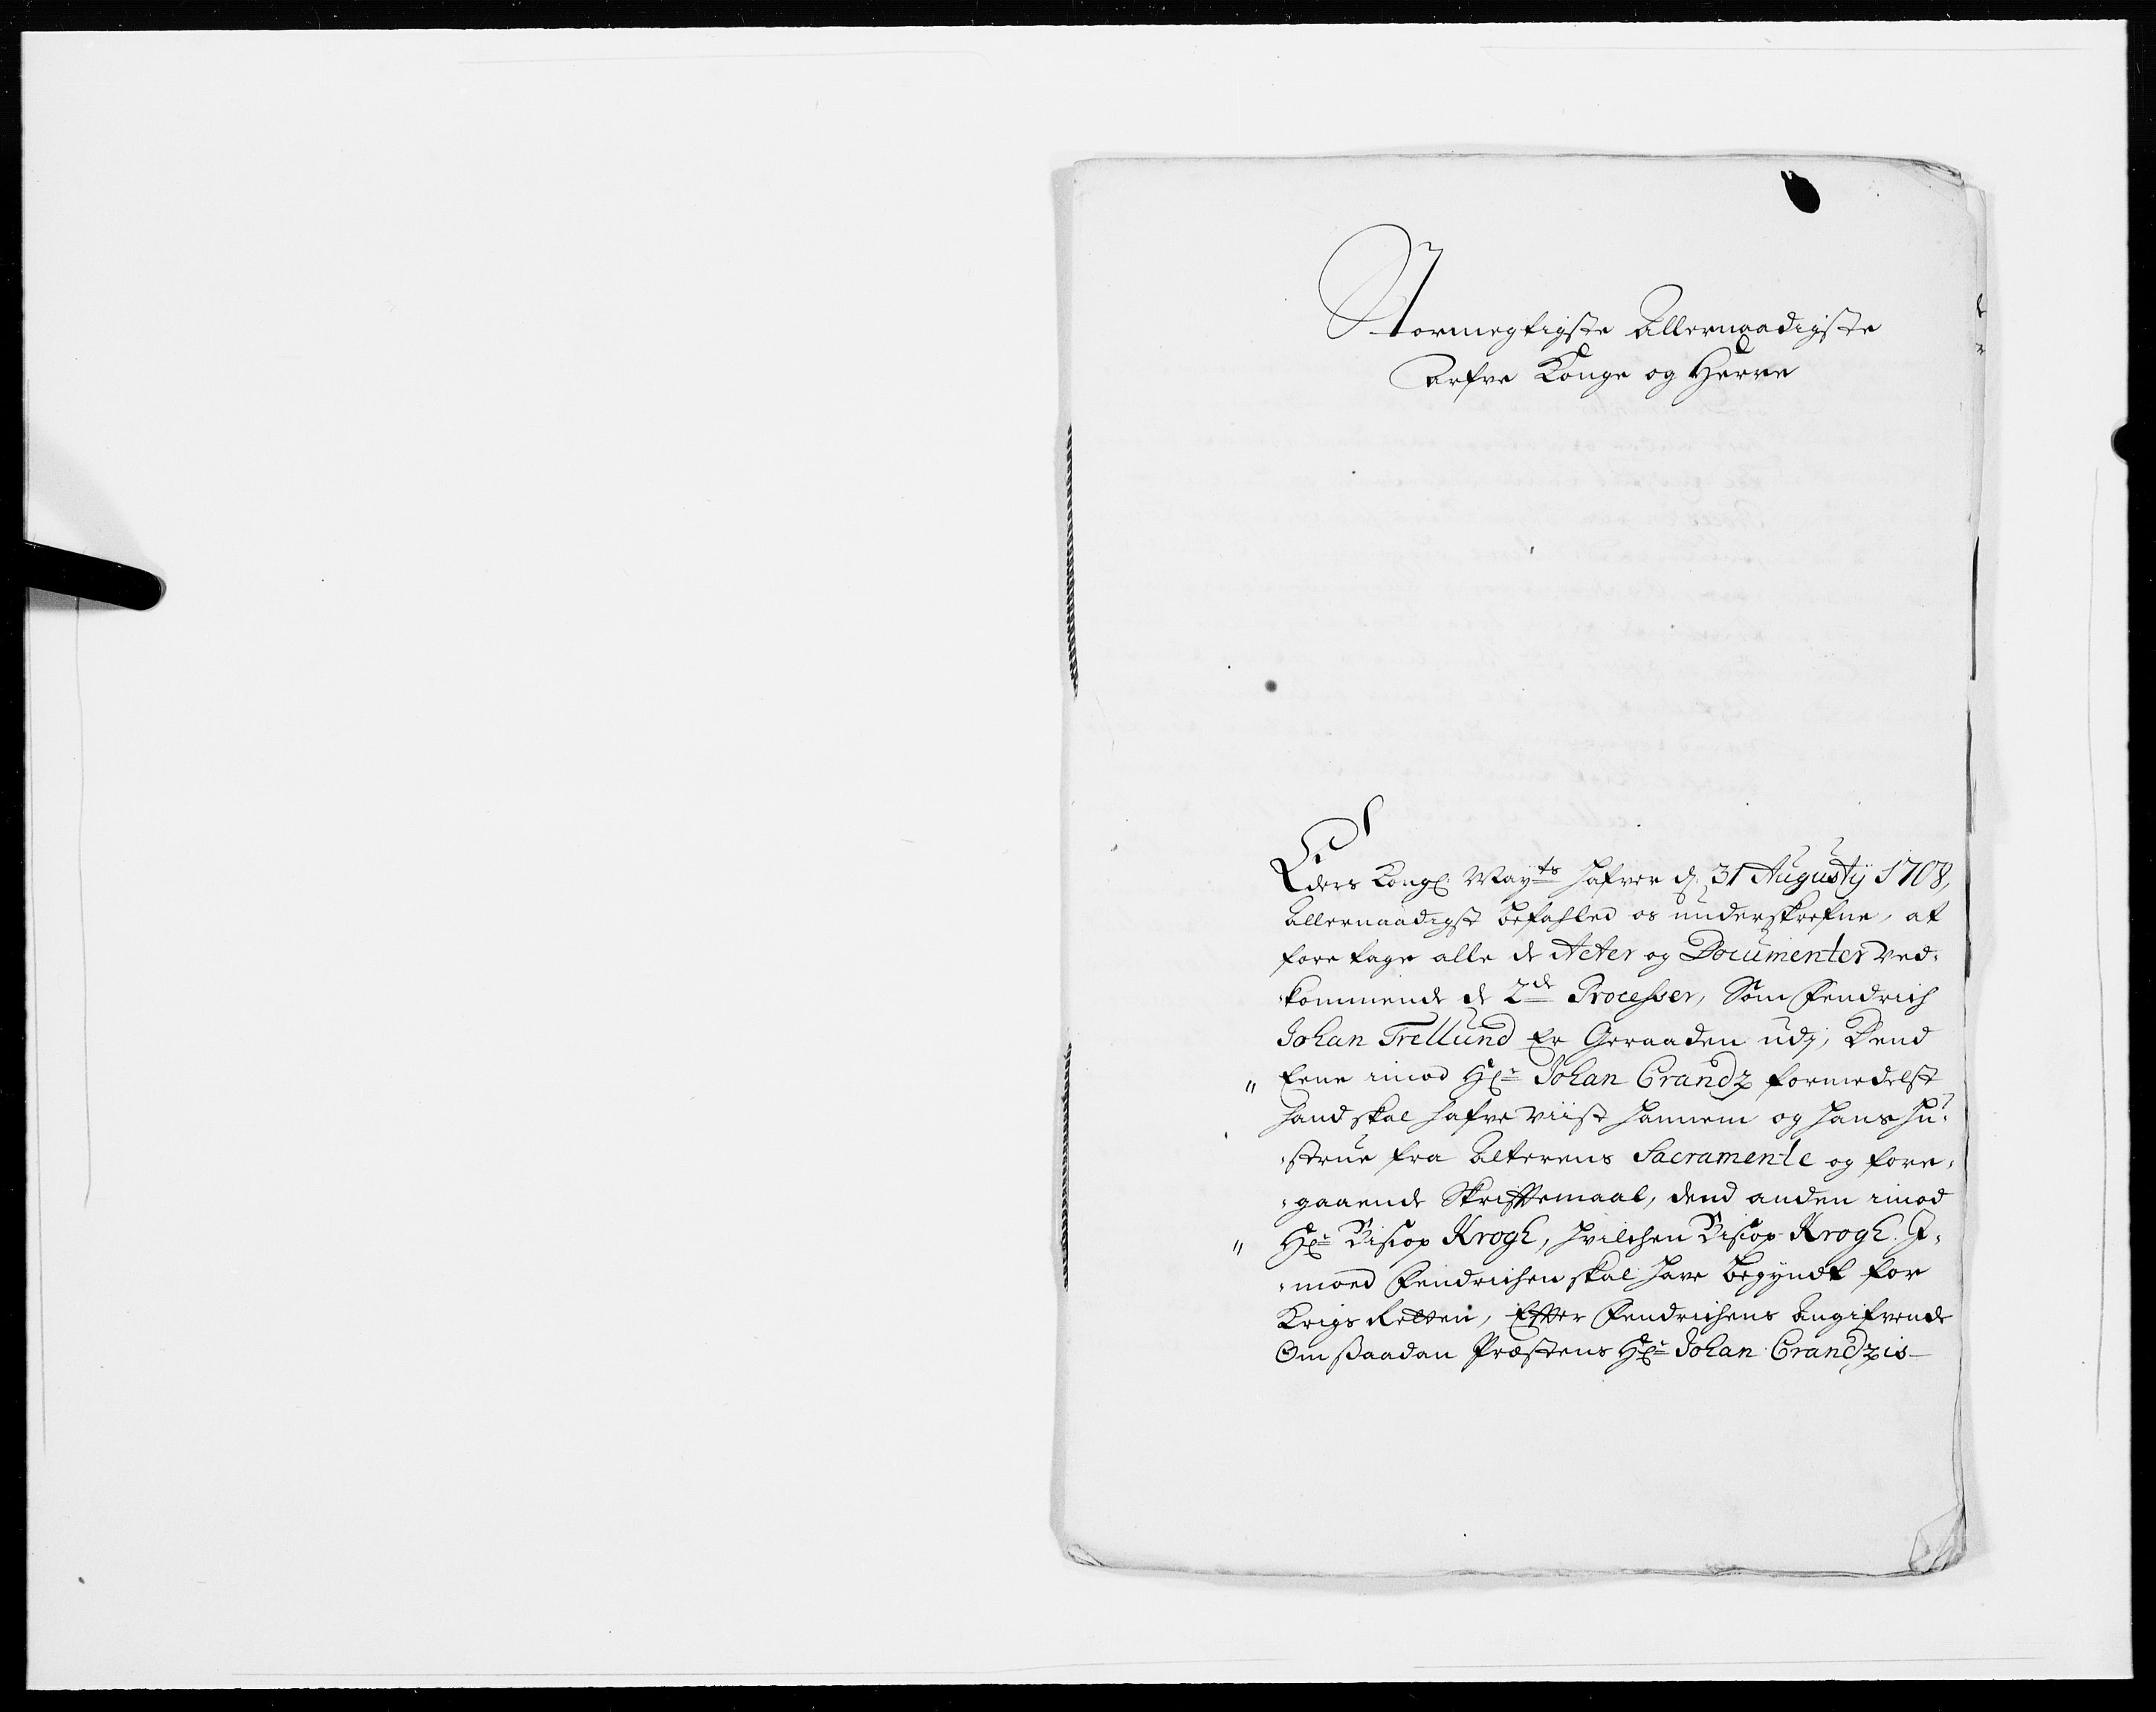 Stormegtigste Allernaadigste
Arfve Konge og Herre
Eders Kongl. Mayts hafver d. 31 Augustij 1708,
Allernaadigst befahled os underskrefne, at
fore tage alle de Acter og Documenter ved-
kommende de 2de Processer, Som Fendrich
Johan Trellund Er Geraaden udj, Dend
" Eene imod Hr. Johan Crandz formedelst
hand skal hafve viist hannem og hans Hu-
strue fra Alterens Sacramente og fore-
gaaende Skriftemaal, dend anden imod
" Hr. Bisiop Krogh, hvilchen Bisiop Krogh I-
moed Fendrichen skal have begyndt for
Krigs Retten, Efter Fendrichens Angifvende
Om ßaadan Præstens Hr. Johan Crandzis